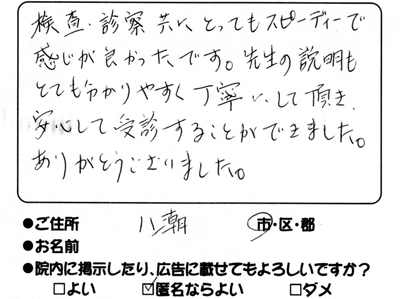 検査・診察 共に とってもスピーディーで
感じが良かったです。先生の説明も
とても分かりやすく丁寧にして頂き、
安心して受診することができました。
ありがとうございました。
●ご住所 八潮 市・区・郡
●お名前
●院内に掲示したり、広告に載せてもよろしいですか？
□よい ☑匿名ならよい □ダメ